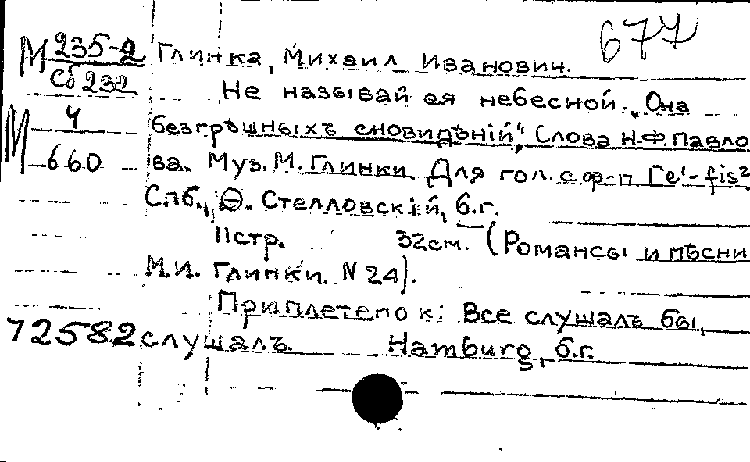 677
М 235-2 Глинка, Михаил Иванович.
Сб 232
Не называй ея небесной. „Она
М 4 безгрѣшныхъ сновидѣнiй“, Слова Н.Ф. Павло
660 ва. Муз. М. Глинки. Для гол. с ф-п
Спб., Ѳ. Стелловскiй, б.г.
11стр. 32см. (Романсы и пѣсни
М.И. Глинки. N 24).
Приплетено к: Все слушалъ бы,
72582 слушалъ. Hamburg, б.г.